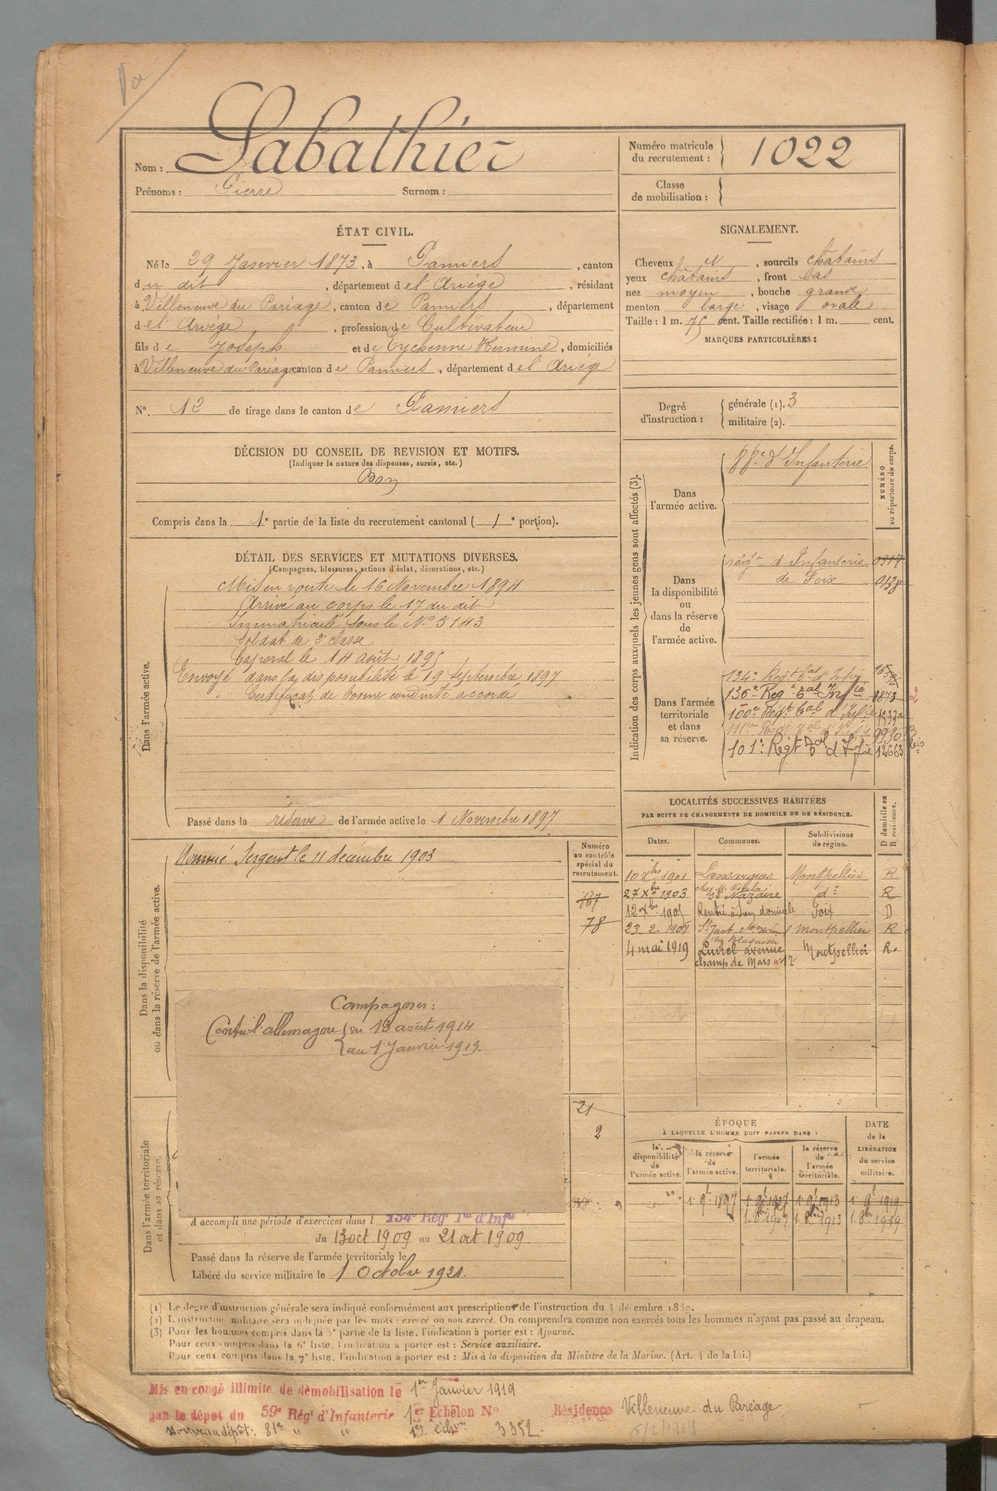 Nom : Labathier
Prénoms : Pierre Surnom :
Numéro matricule du recrutement : 1022
Classe de mobilisation :
ÉTAT CIVIL.
Né le 29 Janvier 1873, à Pamiers, canton
du dit, département de l'Ariège, résidant
à Villeneuve du Pariage, canton de Pamiers, département
de l'Ariège, profession de Cultivateur
fils de Joseph et de Eychenne Hermine, domiciliés
à Villeneuve du Paréage canton de Pamiers, département de l'Ariège
N° 12 de tirage dans le canton de Pamiers
SIGNALEMENT.
Cheveux , sourcils châtains
yeux châtains, front bas
nez moyen, bouche grande
menton large, visage ovale
Taille : 1 m. 75 cent. Taille rectifiée : 1 m. cent.
MARQUES PARTICULIÈRES :
Degré d'instruction : générale (1). 3
militaire (2).
DÉCISION DU CONSEIL DE REVISION ET MOTIFS.
(Indiquer la nature des dispenses, sursis, etc.)
Bon
Compris dans la 1e partie de la liste du recrutement cantonal ( 1e portion).
DÉTAIL DES SERVICES ET MUTATIONS DIVERSES.
(Campagnes, blessures, actions d'éclat, décorations, etc.)
Dans l'armée active.
Mis en route le 16 Novembre 1894
Arrivé au corps le 17 du dit
Immatriculé sous le N° 5143
Soldat de 2e classe
Caporal le 14 août 1895
Envoyé dans la disponibilité le 19 septembre 1897
Certificat de bonne conduite accordé
Passé dans la réserve de l'armée active le 1 Novembre 1897
Dans la disponibilité ou dans la réserve de l'armée active.
Nommé Sergent le 11 décembre 1903
Numéro au contrôle spécial du recrutement.
167
78
Campagnes :
Contre l'allemagne du 13 août 1914
au 1 Janvier 1919.
21
2
Dans l'armée territoriale et dans sa réserve.
A accompli une période d'exercices dans l 134e Régt Tal d'Infie
du 13 oct 1909 au 21 oct 1909
Passé dans la réserve de l'armée territoriale le
Libéré du service militaire le 1 Octobre 1921.
Indication des corps auxquels les jeunes gens sont affectés (3).
NUMÉRO au répertoire du corps.
Dans l'armée active.
88e d'Infanterie
Dans la disponibilité ou dans la réserve de l'armée active.
régt d'Infanterie
de Foix
0138
Dans l'armée territoriale et dans sa réserve.
134e Régt Tal d'Infie
136e Régt Tal Infie 8873
100e Régt Tal d'Infie
9930
101e Régt Tal d'Infie 12663
LOCALITÉS SUCCESSIVES HABITÉES
PAR SUITE DE CHANGEMENTS DE DOMICILE OU DE RÉSIDENCE.
Dates. Communes. Subdivisions de région. D domicile ou R résidence.
10 Xbre 1901 Lansargues Montpellier R
27 Xbre 1903 St Nazaire d° R
12 Xbre 1905 Rentré à son domicile Foix D
23 2 1909 St Just Montpellier R
4 mai 1919 Lunel avenue Montpellier R.
champ de Mars n° 12
ÉPOQUE
À LAQUELLE L'HOMME DOIT PASSER DANS :
la disponibilité de l'armée active. la réserve de l'armée active. l'armée territoriale. la réserve de l'armée territoriale. DATE de la LIBÉRATION du service militaire.
1 9bre 1897 1 9bre 1907 1 9bre 1913 1 9bre 1919
1 8bre 1907 1 8bre 1913 1 8bre 1919
(1) Le degré d'instruction générale sera indiqué conformément aux prescriptions de l'instruction du 4 décembre 1889.
(2) L'instruction militaire sera indiquée par les mots : exercé ou non exercé. On comprendra comme non exercés tous les hommes n'ayant pas passé au drapeau.
(3) Pour les hommes compris dans la 5e partie de la liste, l'indication à porter est : Ajourné.
Pour ceux compris dans la 6e liste, l'indication à porter est : Service auxiliaire.
Pour ceux compris dans la 7e liste, l'indication à porter est : Mis à la disposition du Ministre de la Marine. (Art. 4 de la loi.)
Mis en congé illimité de démobilisation le 1er Janvier 1919
par le dépot du 59e Régt d'Infanterie 1er Echelon N° Résidence Villeneuve du Paréage
nouveau dépôt : 81e " " 1er échon 3352